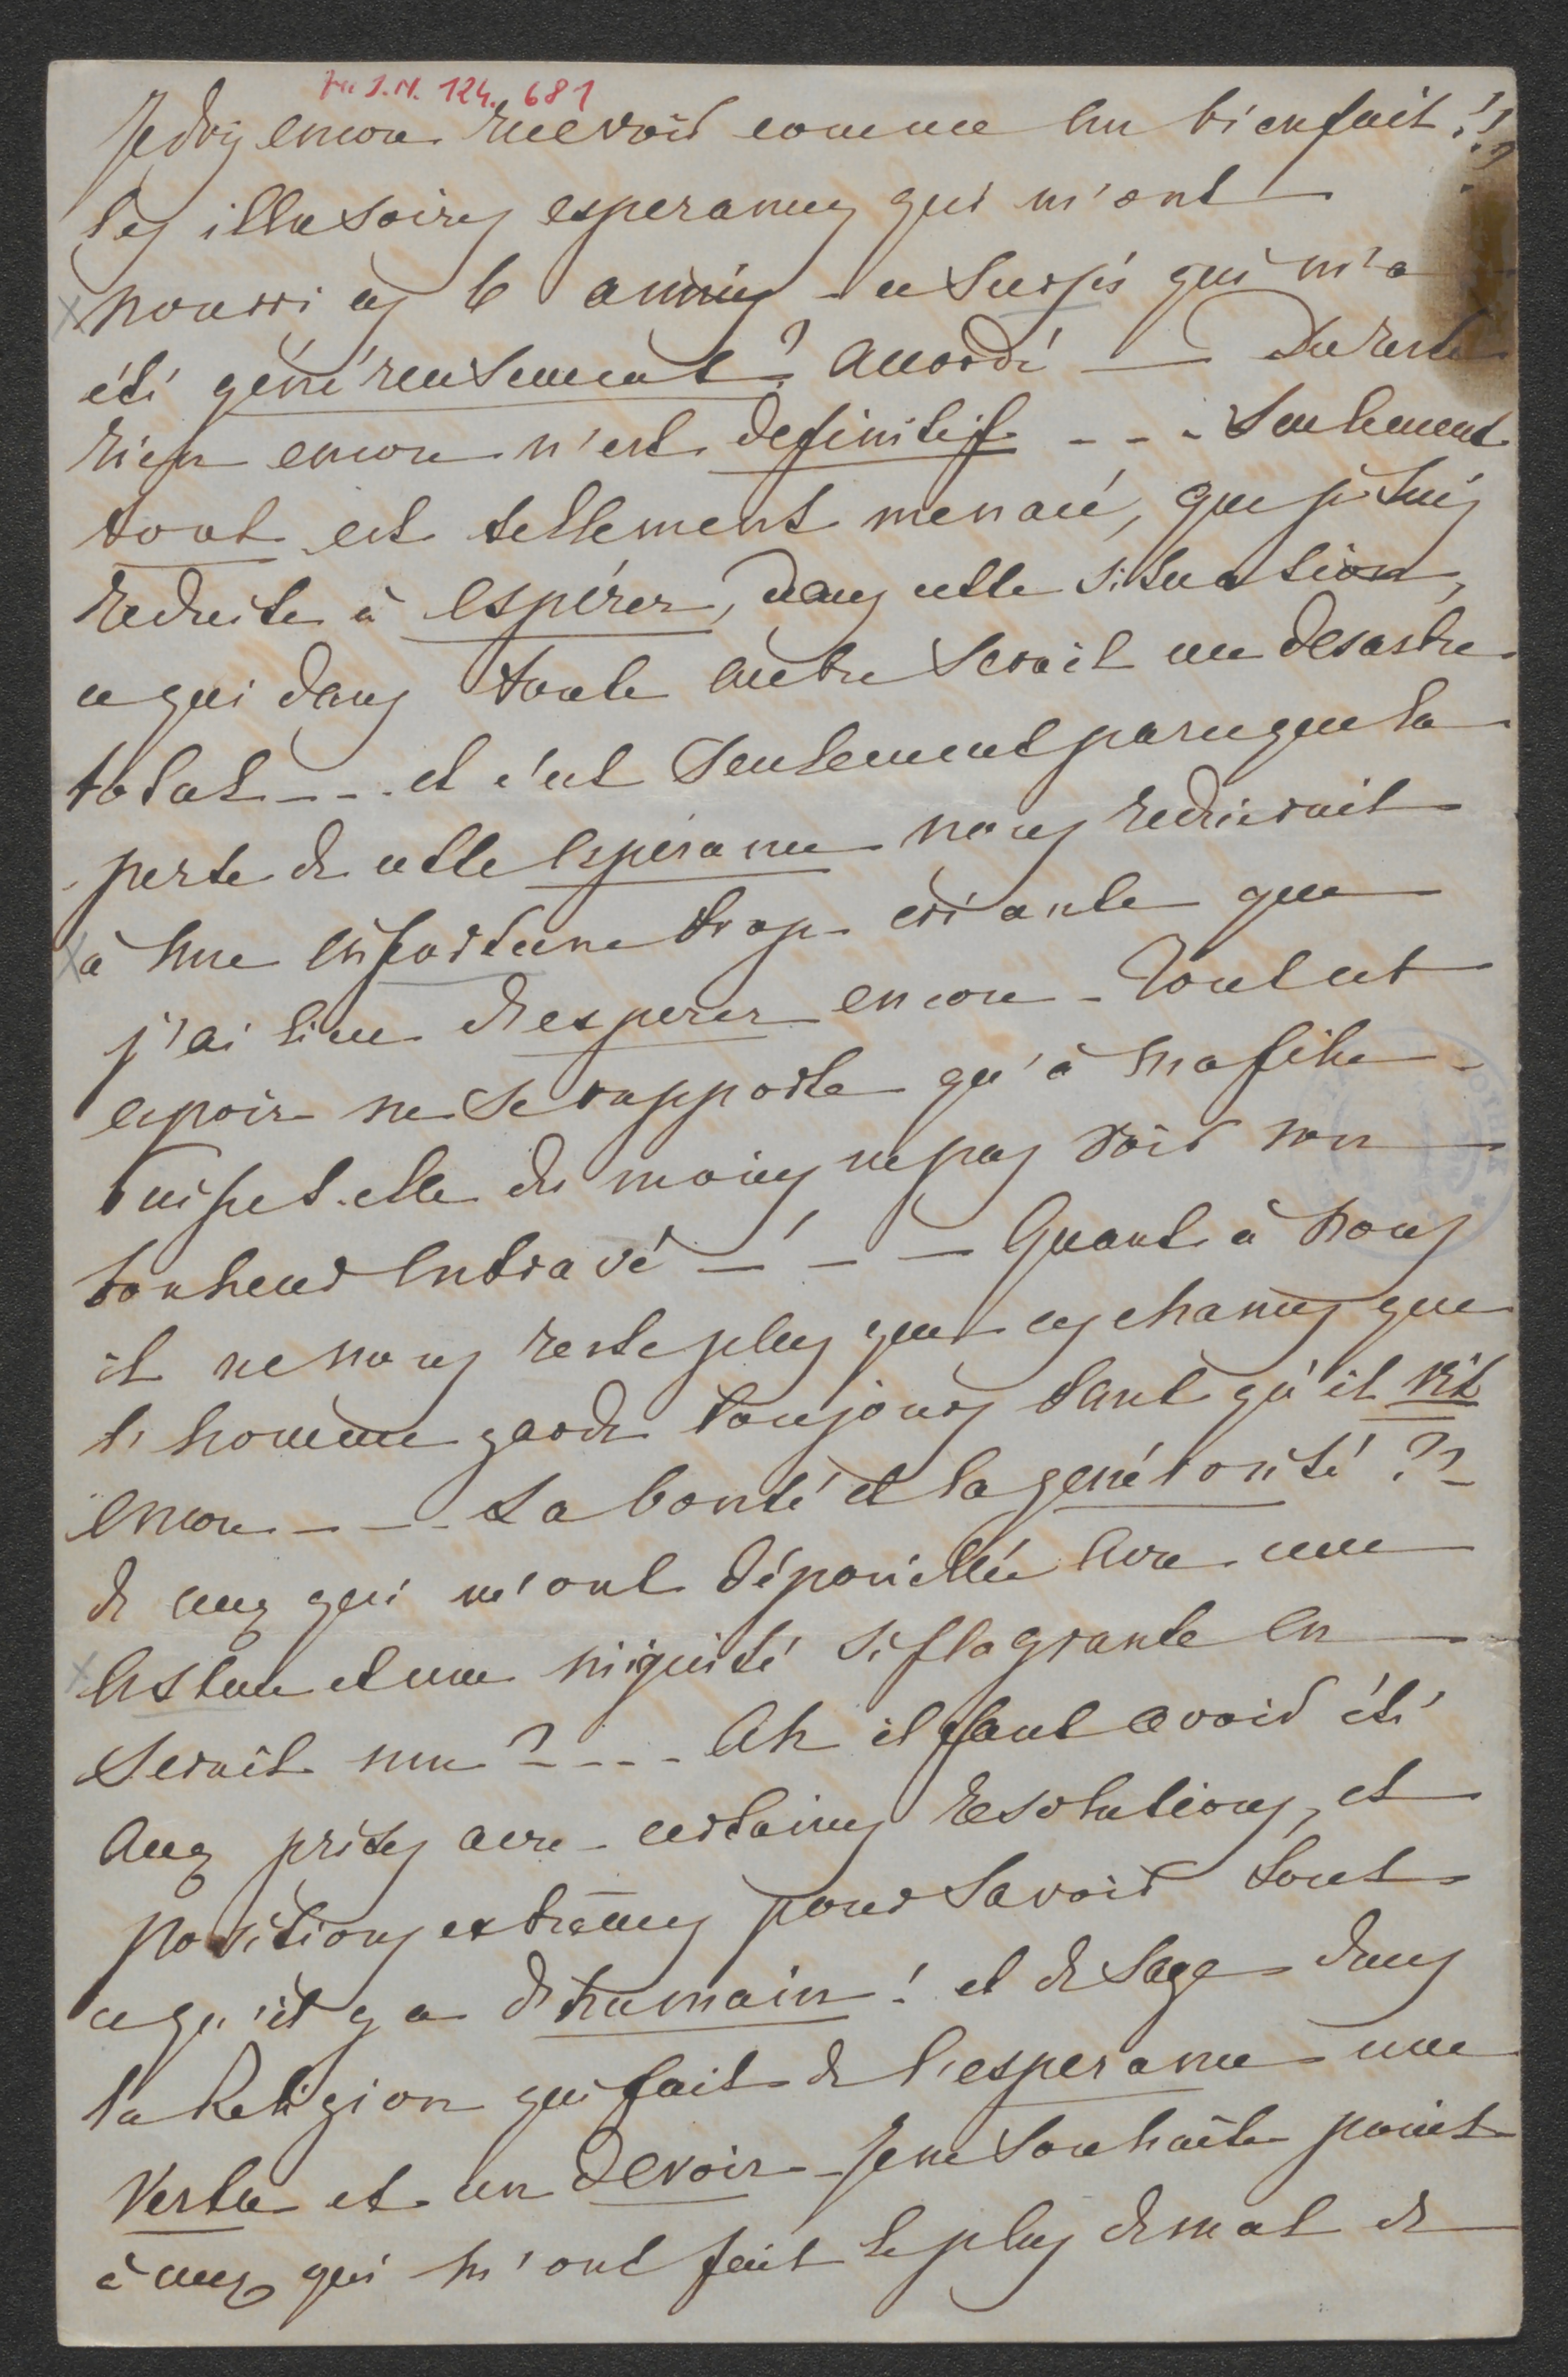 J.N. 124.681
Je dois encore recevoir comme un bienfait!!?
les illusoires esperances qui m'ont
nourri ces 6 années - ce sursis qui m'a
été généreusement? accordé — Du reste
rien encore n'est definitif - - - Seulement
tout est tellement menacé, que je suis
reduite à espérer, dans cette situation,
ce qui dans toute autre serait un desastre
total - - - et c'est seulement parceque la
perte de cette espérance nous reduirait
à une infortune trop criante que
j'ai lieu d'esperer encore - Tout cet
espoir ne se rapporte qu'à ma fille -
Puisse t-elle du moins ne pas voir son
bonheur entravé — - — Quant à nous
il ne nous reste plus que ces chances que
l'homme garde toujours tant qu'il vit
encore - - - La bonté et la génerosité??
de ceux qui m'ont dépouillée avec une
astuce et une iniquité si flagrante en
serait une? - - - Ah il faut avoir été
aux prises avec certaines resolutions, et
positions extrêmes pour savoir tout
ce qu'il y a d'humain! et de sage dans
la Religion qui fait de l'esperance une
vertu et un devoir - Je ne souhaite point
à ceux qui m'ont fait le plus de mal de